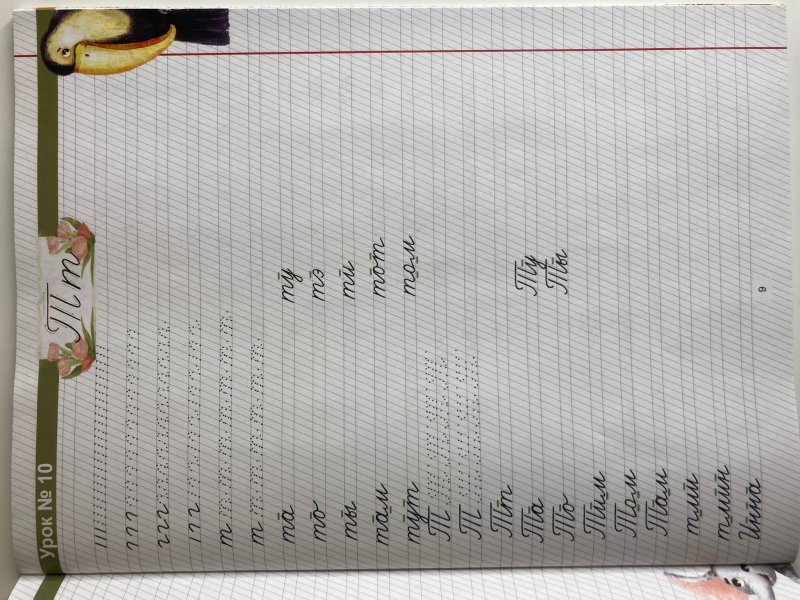 Урок № 10
Т т
т
т
та ту
то тэ
ты ти
там тот
тут том
Т
Т
Тт
Та Ту
То Ты
Тим
Том
Там
тми
тмин
Инна
9